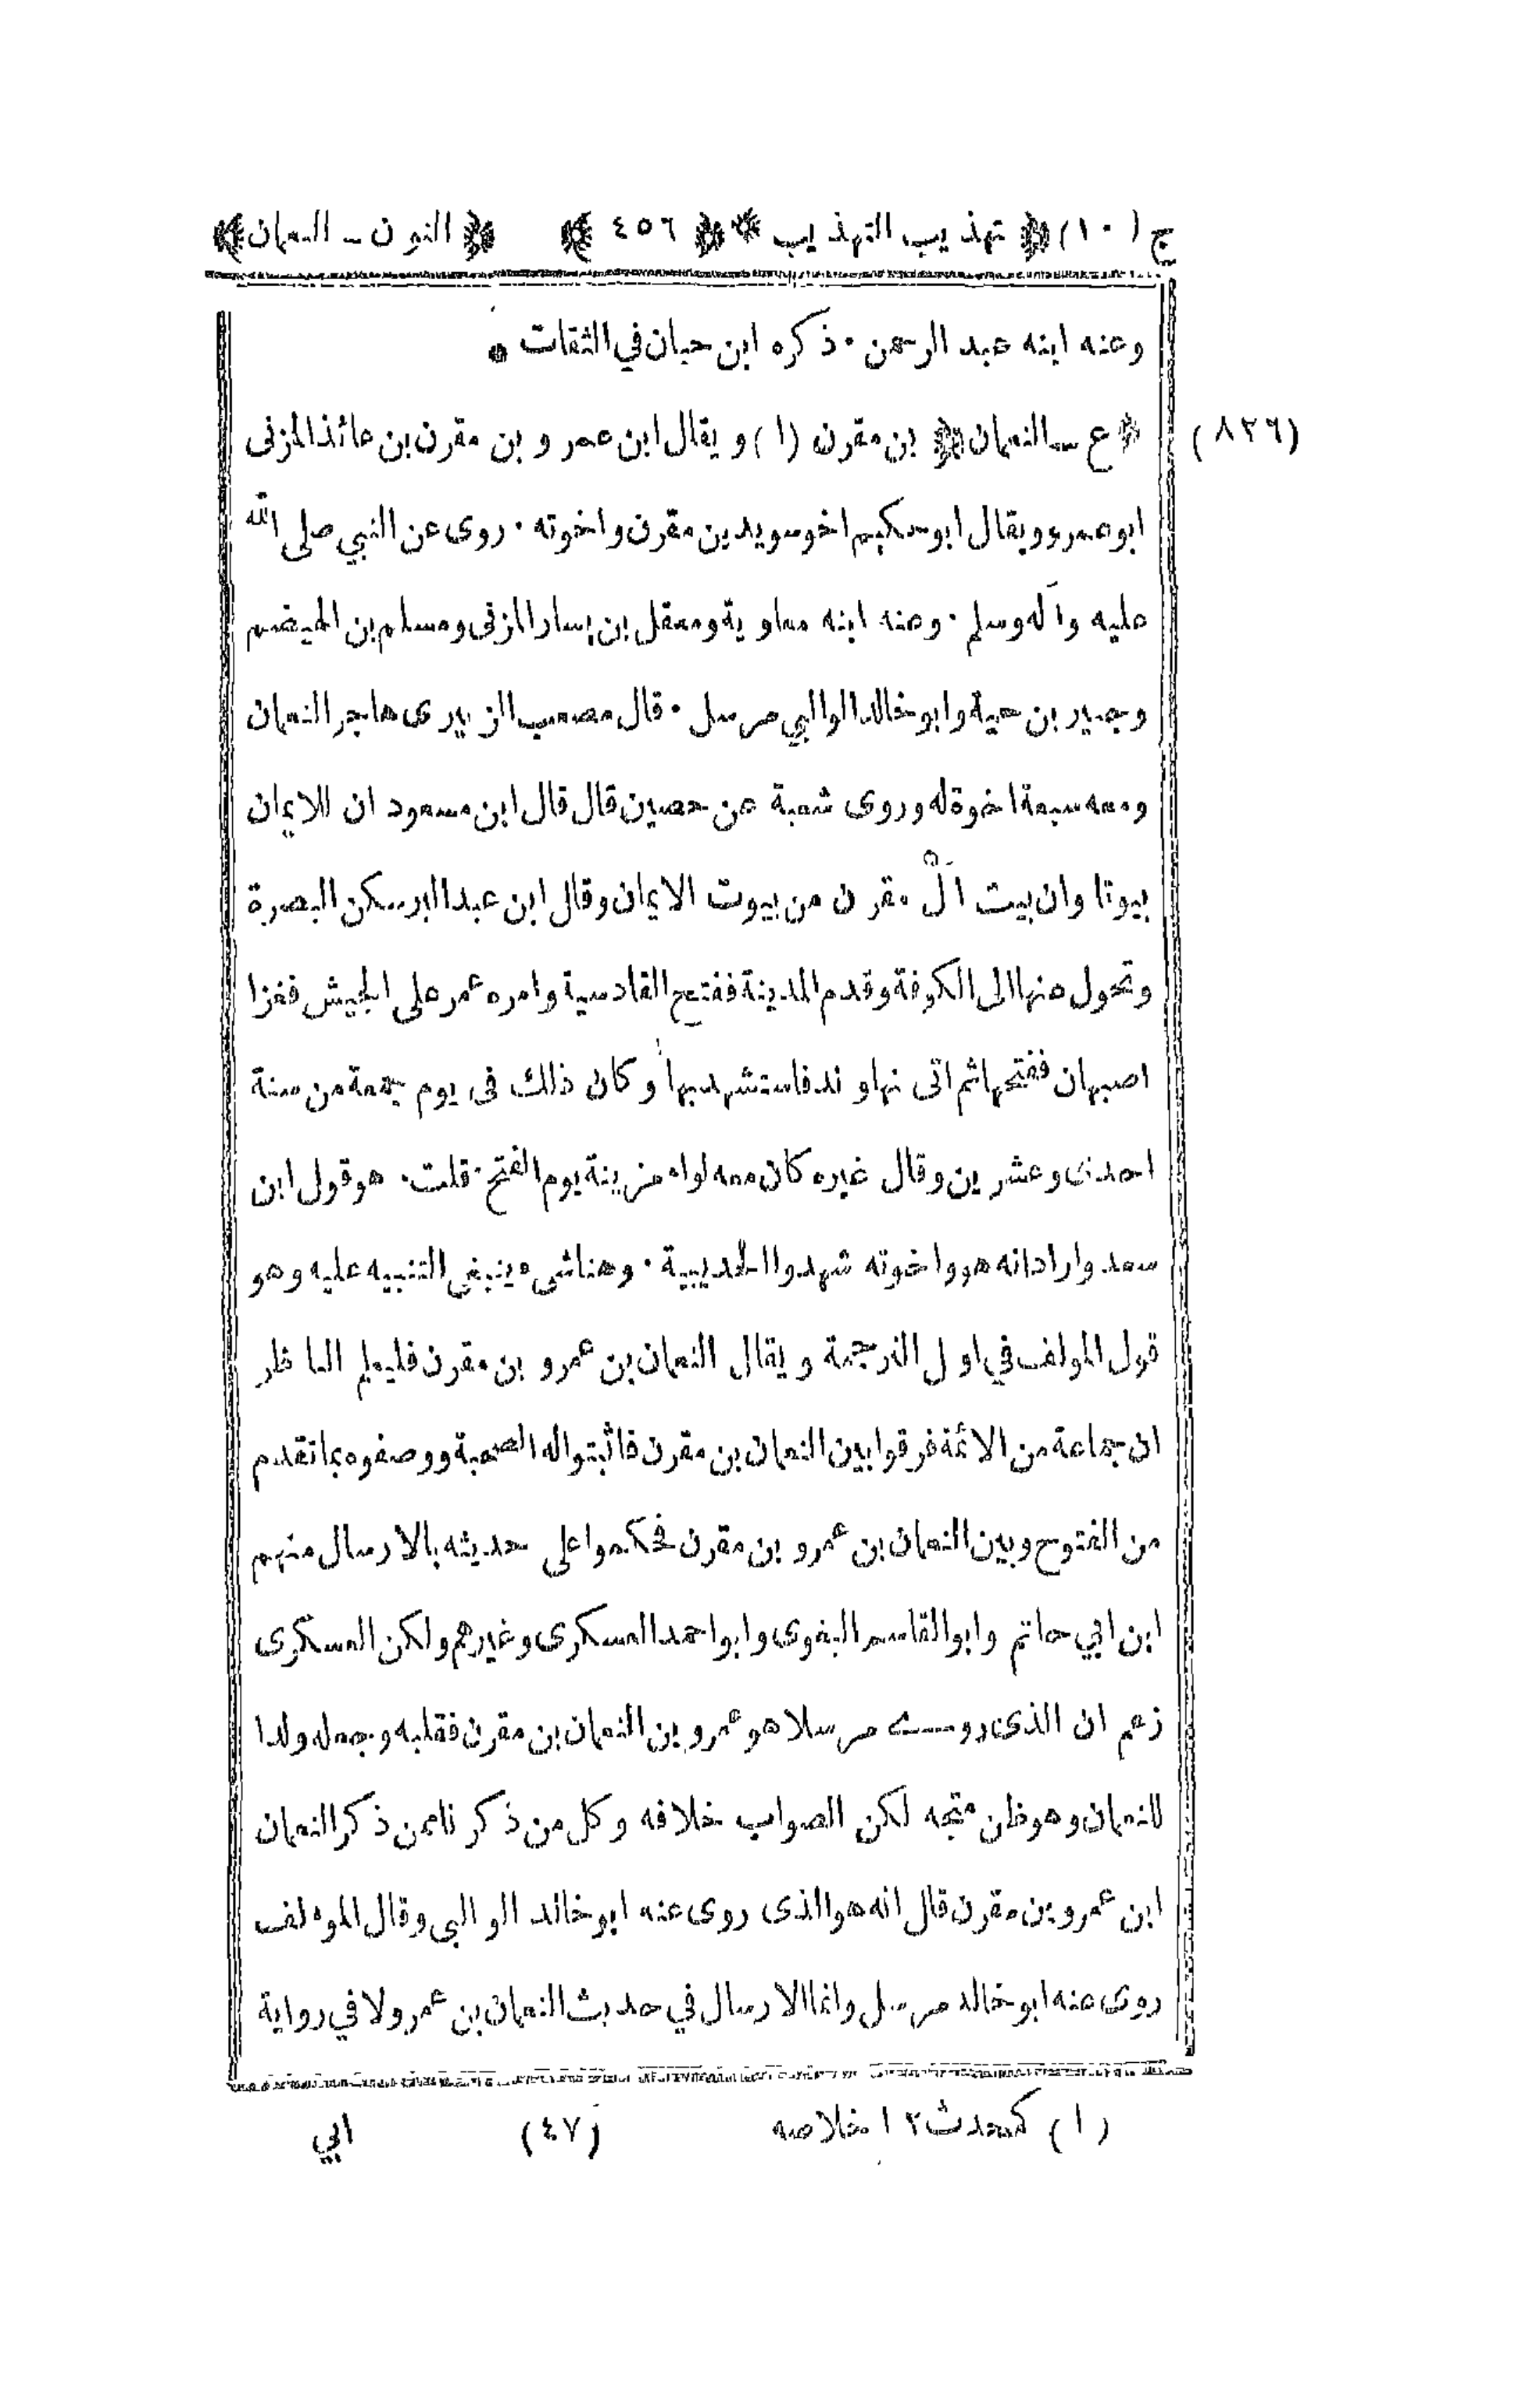 ج (١٠) ﴿ تهذيب التهذيب * ﴿ ٤٥٦ ﴾ ﴿ النون ـ النعمان ﴾
وعنه ابنه عبد الرحمن · ذكره ابن حبان في الثقات •
(٨٢٦) * ع ـ النعمان ﴾ بن مقرن (١) ويقال ابن عمرو بن مقرن بن عائذ المزنى
ابو عمرو ويقال ابو حكيم اخو سويد بن مقرن واخوته · روى عن النبي صلى الله
عليه وآله وسلم · وعنه ابنه معاوية ومعقل بن يسار المزنى ومسلم بن الهيضم
وجبير بن حية وابو خالد الوالبي مرسل · قال مصعب الزبيرى هاجر النعمان
ومعه سبعة اخوة له وروى شعبة عن حصين قال قال ابن مسعود ان للايمان
بيوتا وان بيت آل مقرن من بيوت الايمان وقال ابن عبد البر سكن البصرة
وتحول عنها الى الكوفة وقدم المدينة ففتح القادسية وامره عمر على الجيش فغزا
اصبهان ففتحها ثم اتى نهاوند فاستشهد بها وكان ذلك فى يوم جمعة من سنة
احدى وعشرين وقال غيره كان معه لواء مزينة يوم الفتح · قلت · هو قول ابن
سعد واراد انه هو واخوته شهدوا الحديبية · وهنا شىء ينبغى التنبيه عليه وهو
قول المولف في اول الترجمة ويقال النعمان بن عمرو بن مقرن فليعلم الناظر
ان جماعة من الائمة فرقوا بين النعمان بن مقرن فاثبتوا له الصحبة ووصفوه بما تقدم
من الفتوح وبين النعمان بن عمرو بن مقرن فحكموا على حديثه بالارسال منهم
ابن ابي حاتم وابو القاسم البغوى وابو احمد العسكرى وغيرهم ولكن العسكرى
زعم ان الذى روى مرسلا هو عمرو بن النعمان بن مقرن فقلبه وجعله ولدا
للنعمان وهو ظن متجه لكن الصواب خلافه وكل من ذكرنا ممن ذكر النعمان
ابن عمرو بن مقرن قال انه هو الذى روى عنه ابو خالد الوالبى وقال الموءلف
روى عنه ابو خالد مرسل وانما الارسال في حديث النعمان بن عمرو لا في رواية
(١) كمحدث ١٢ خلاصه (٤٧) ابي